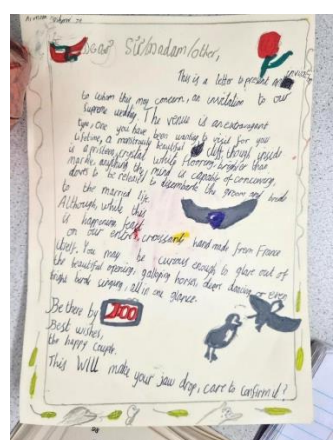 Dear Sir/Madam/Other,
This is a letter to present an
to whom this may concern, an invitation to our
Supreme wedding. The venue is an extravagent
type, one you have been wanting to visit for your
lifetime, a monstrously beautiful cliff, though inside
is a pristine, crystal white Honmon, brighter that
maybe anything the mind is capable of conceiving,
doves to be released to the groom and bride
to the married life.
Although, while this
is happening, feast
on our entire croissant, hand made from France
itself. You may be curious enough to glare out of
the beautiful opening, galloping horses, deers dancing or even
bright birds singing, all in one glance.
Be there by
Best wishes,
the happy couple.
This WILL make your jaw drop, care to confirm it?